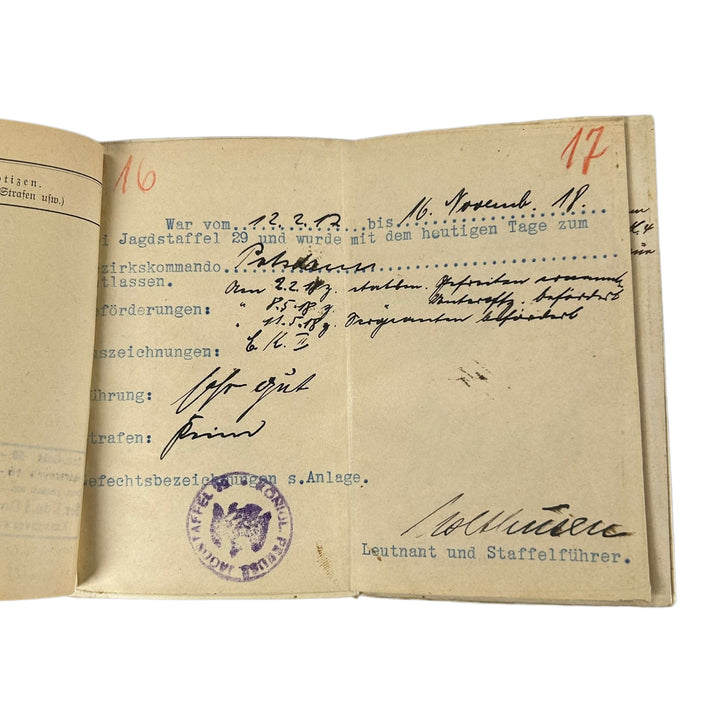 otizen.
Strafen usw.)
16
17
War vom 12.2.17 bis 16. Novemb. 18.
i Jagdstaffel 29 und wurde mit dem heutigen Tage zum
zirkskommando Potsdam
tlassen.
Am 2.2.18 z. etatsm. Gefreiten ernannt
förderungen: " 8.5.18 z. Unteroffz. befördert
" 11.5.18 z. Sergeanten befördert
szeichnungen: E. K. II
ührung: sehr gut
trafen: Keine
efechtsbezeichnungen s. Anlage.
KÖNIGL. PREUSS. JAGDSTAFFEL 29
Holthusen
Leutnant und Staffelführer.